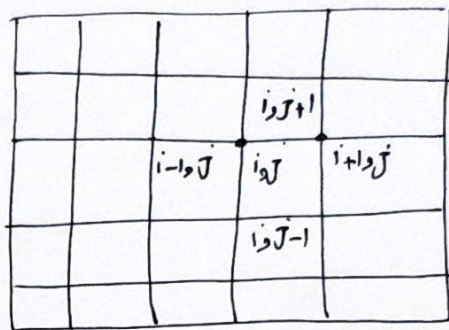 i,j+1
i-1,j i,j i+1,j
i,j-1